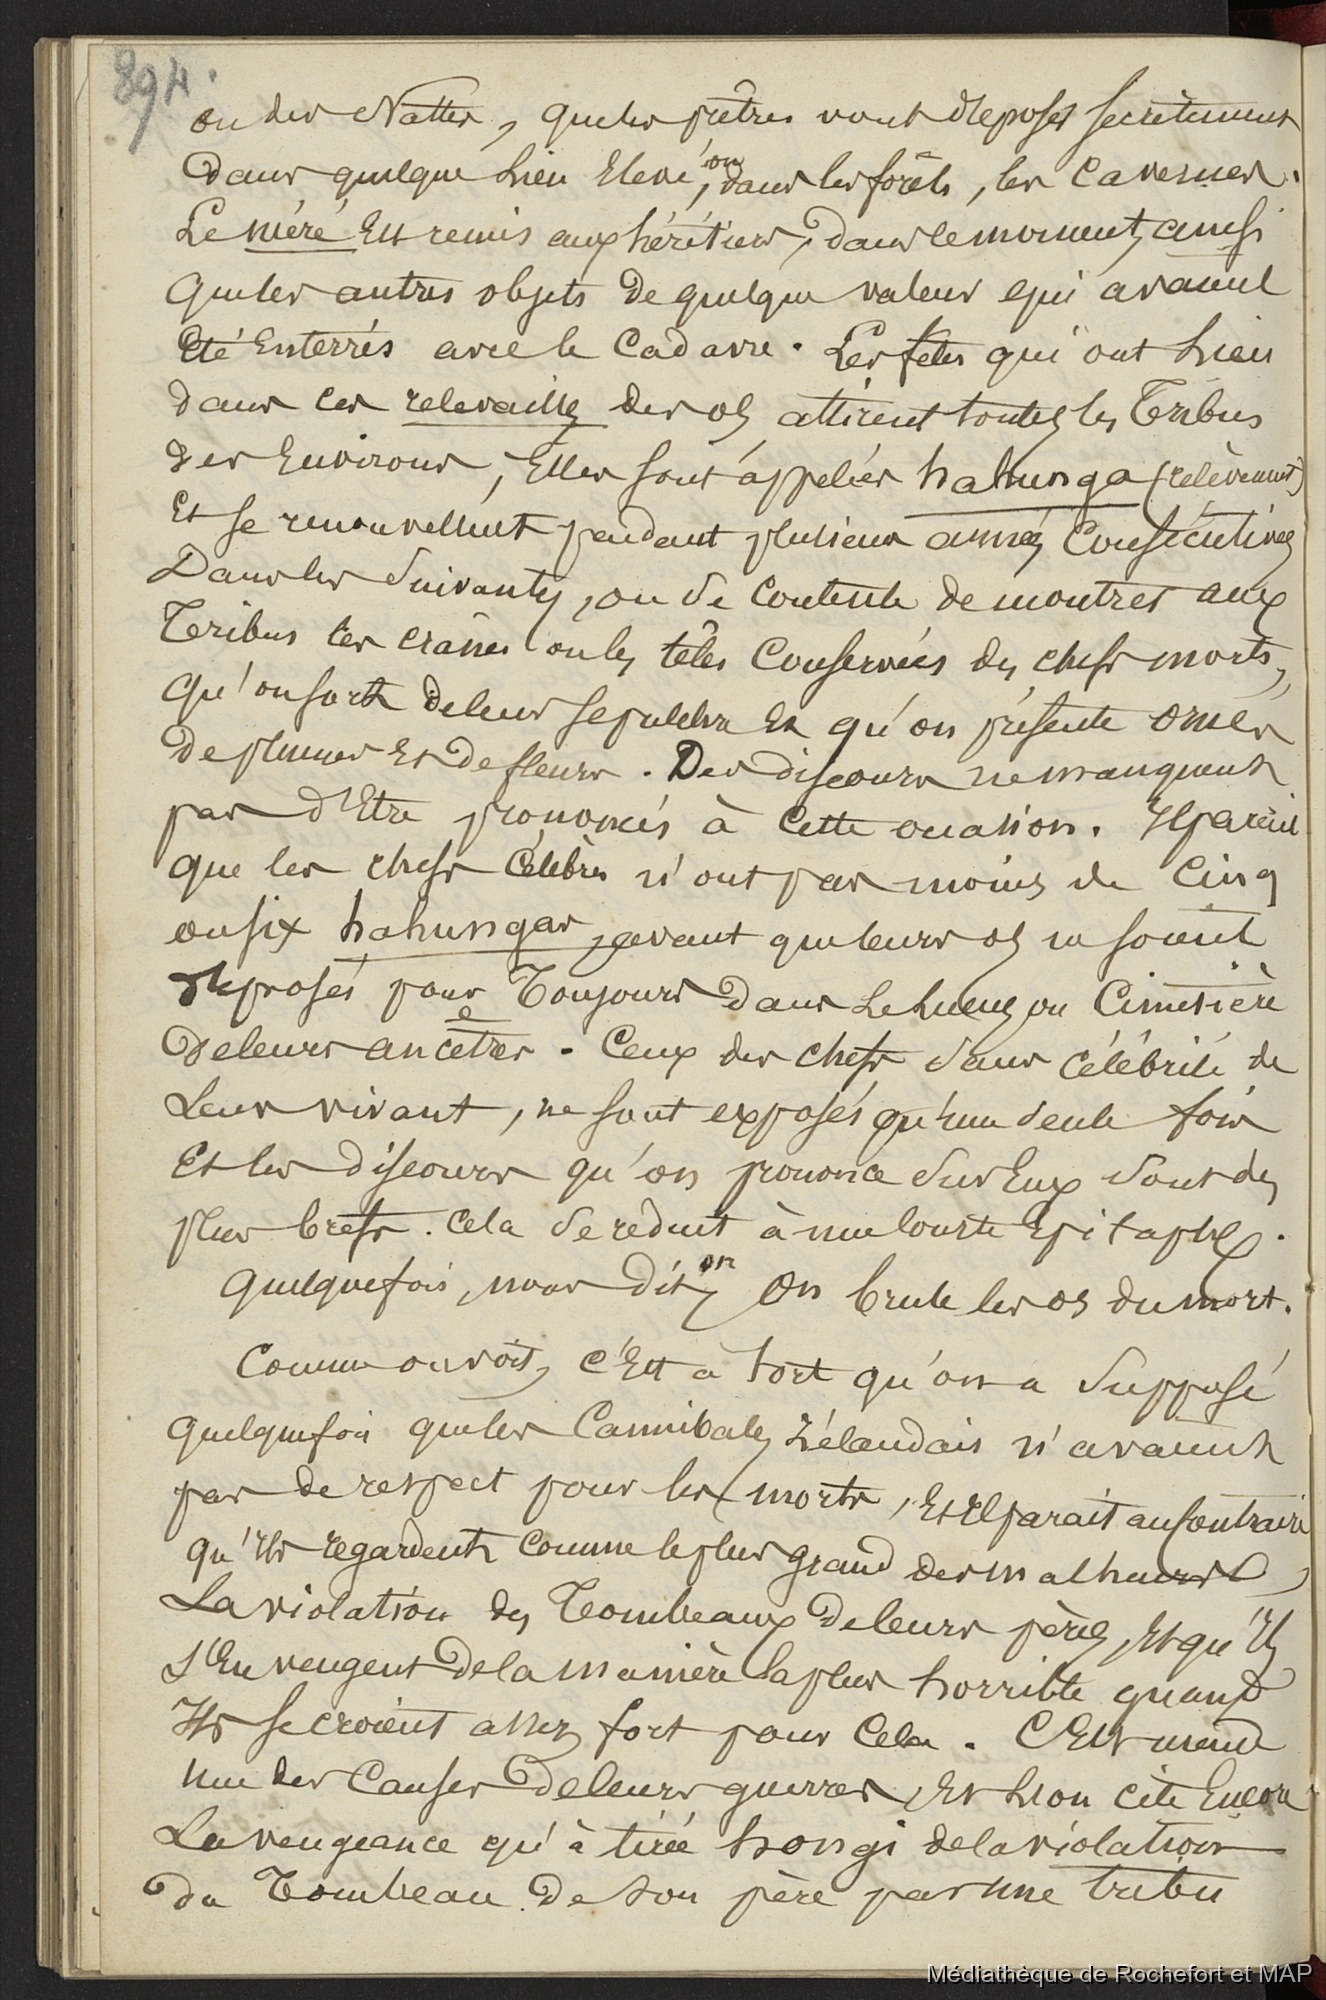 894.
ou des Nattes, que les prêtres vont déposer secrètement
dans quelque Lieu Elevé, ou dans les forêts, les Cavernes.
Le méré Est remis aux héritiers, dans le moment, ainsi
que les autres objets de quelque valeur qui avaient
Eté Enterrés avec le Cadavre. Les fêtes qui ont Lieu
dans ces relevailles des os attirent toutes les Tribus
des Environs, Elles sont appelées hahunga (relèvement)
Et se renouvellent pendant plusieurs années Consécutives
Dans les suivantes, on se contente de montrer aux
Tribus les crânes ou les têtes Conservées des chefs morts,
qu'on sort de leur sepulchre Et qu'on présente ornées
de plumes Et de fleurs. Des discours ne manquent
pas d'Etre prononcés à cette occasion. Il parait
que les chefs Célèbres n'ont pas moins de Cinq
ou six hahungas, avant que leurs os ne soient
déposés pour Toujours dans Le Lieu, ou Cimetière
de leurs ancêtres. Ceux des chefs sans célébrité de
Leur vivant, ne sont exposés qu'une seule fois
Et les discours qu'on prononce sur Eux sont des
plus brefs. Cela se réduit à une courte Epitaphe.
Quelquefois, nous dit-on, On brule les os du mort.
Comme on voit, C'Est à tort qu'on a supposé
quelquefois que les Cannibales Zélandais n'avaient
pas de respect pour les morts, Et Il parait au Contraire
qu'Ils regardent comme le plus grand des malheurs,
La violation des Tombeaux de leurs pères, Et qu'Ils
s'En vengent de la manière la plus horrible quand
Ils se croient assez fort pour Cela. C'Est même
une des Causes de leurs guerres, Et L'on cite Encore
La vengeance qu'à tirée hongi de la violation
du Tombeau de son père par une tribu
Médiathèque de Rochefort et MAP